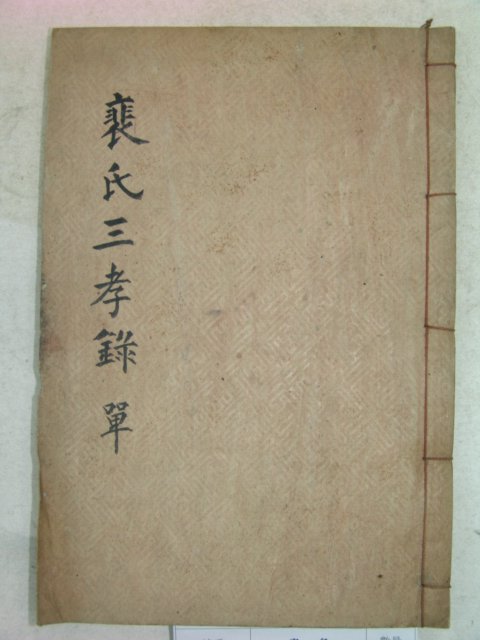 裵氏三孝錄 單